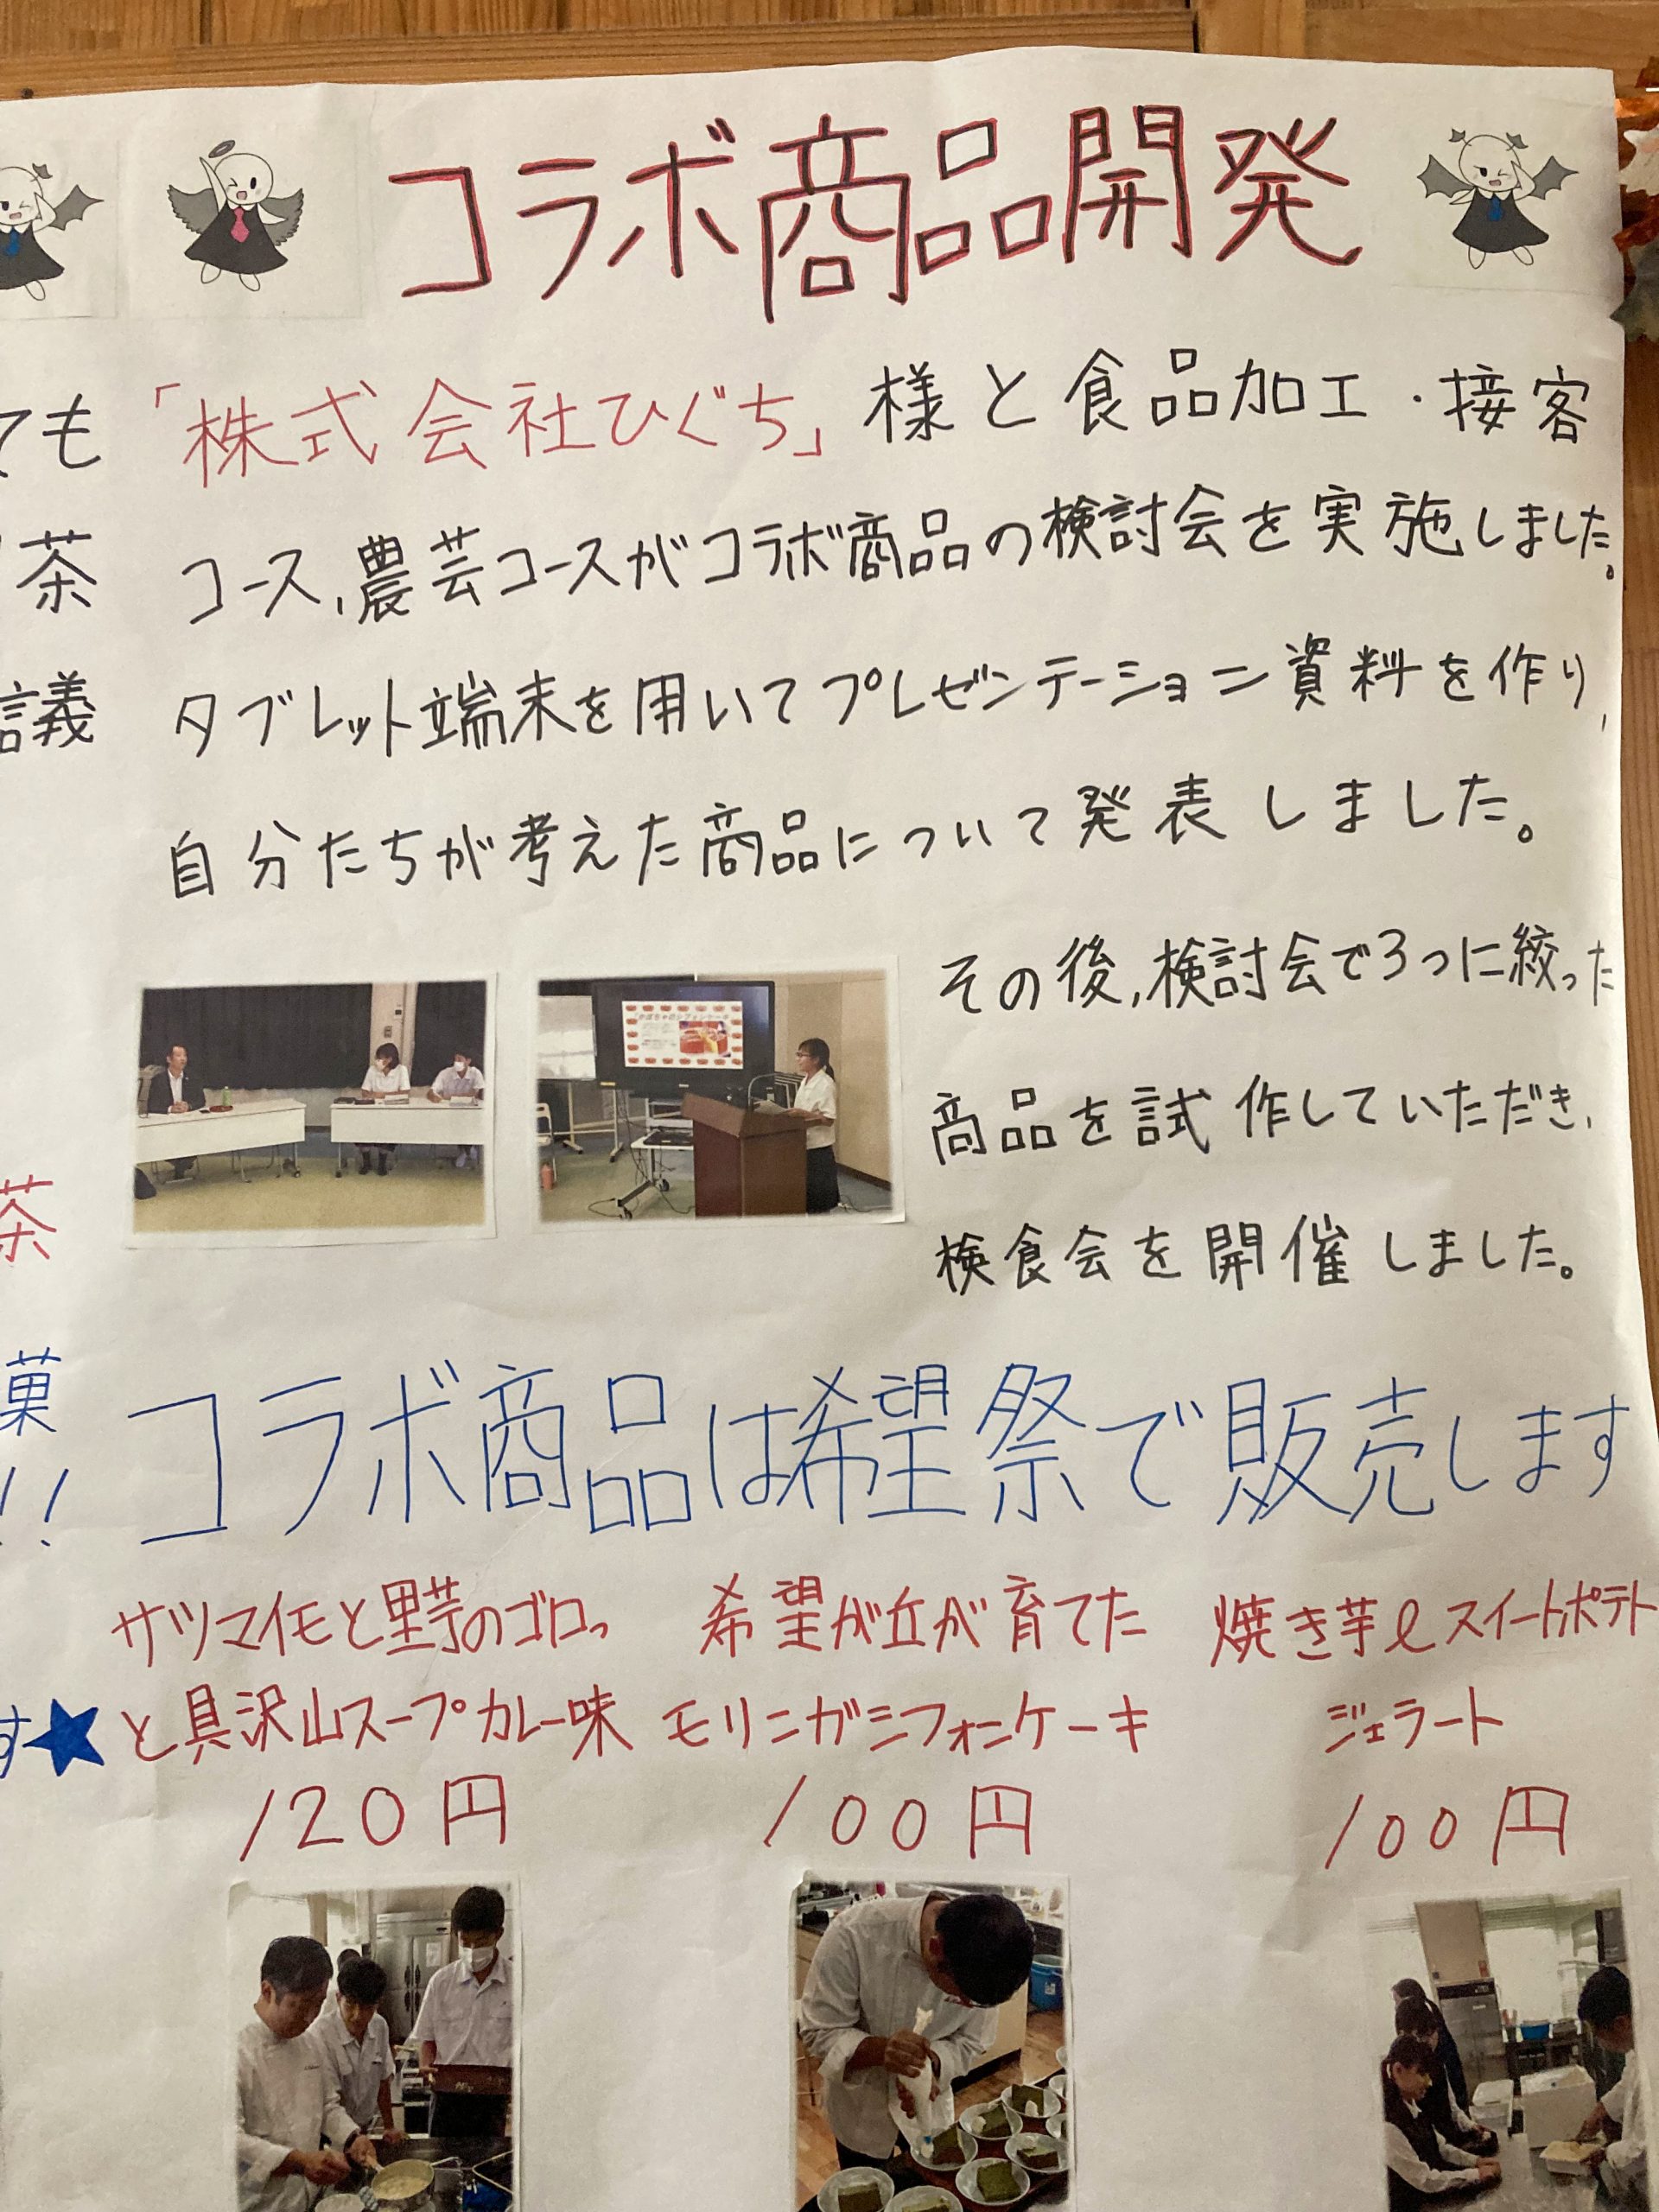 コラボ商品開発
「株式会社ひぐち」様と食品加工・接客
コース、農芸コースがコラボ商品の検討会を実施しました。
タブレット端末を用いてプレゼンテーション資料を作り、
自分たちが考えた商品について発表しました。
その後、検討会で3つに絞った
商品を試作していただき、
検食会を開催しました。
コラボ商品は希望祭で販売します
サツマイモと里芋のゴロっ
と具沢山スープカレー味
120円
希望が丘が育てた
モリンガシフォンケーキ
100円
焼き芋&スイートポテト
ジェラート
100円
ても
茶
議
茶
菓
!!
す★